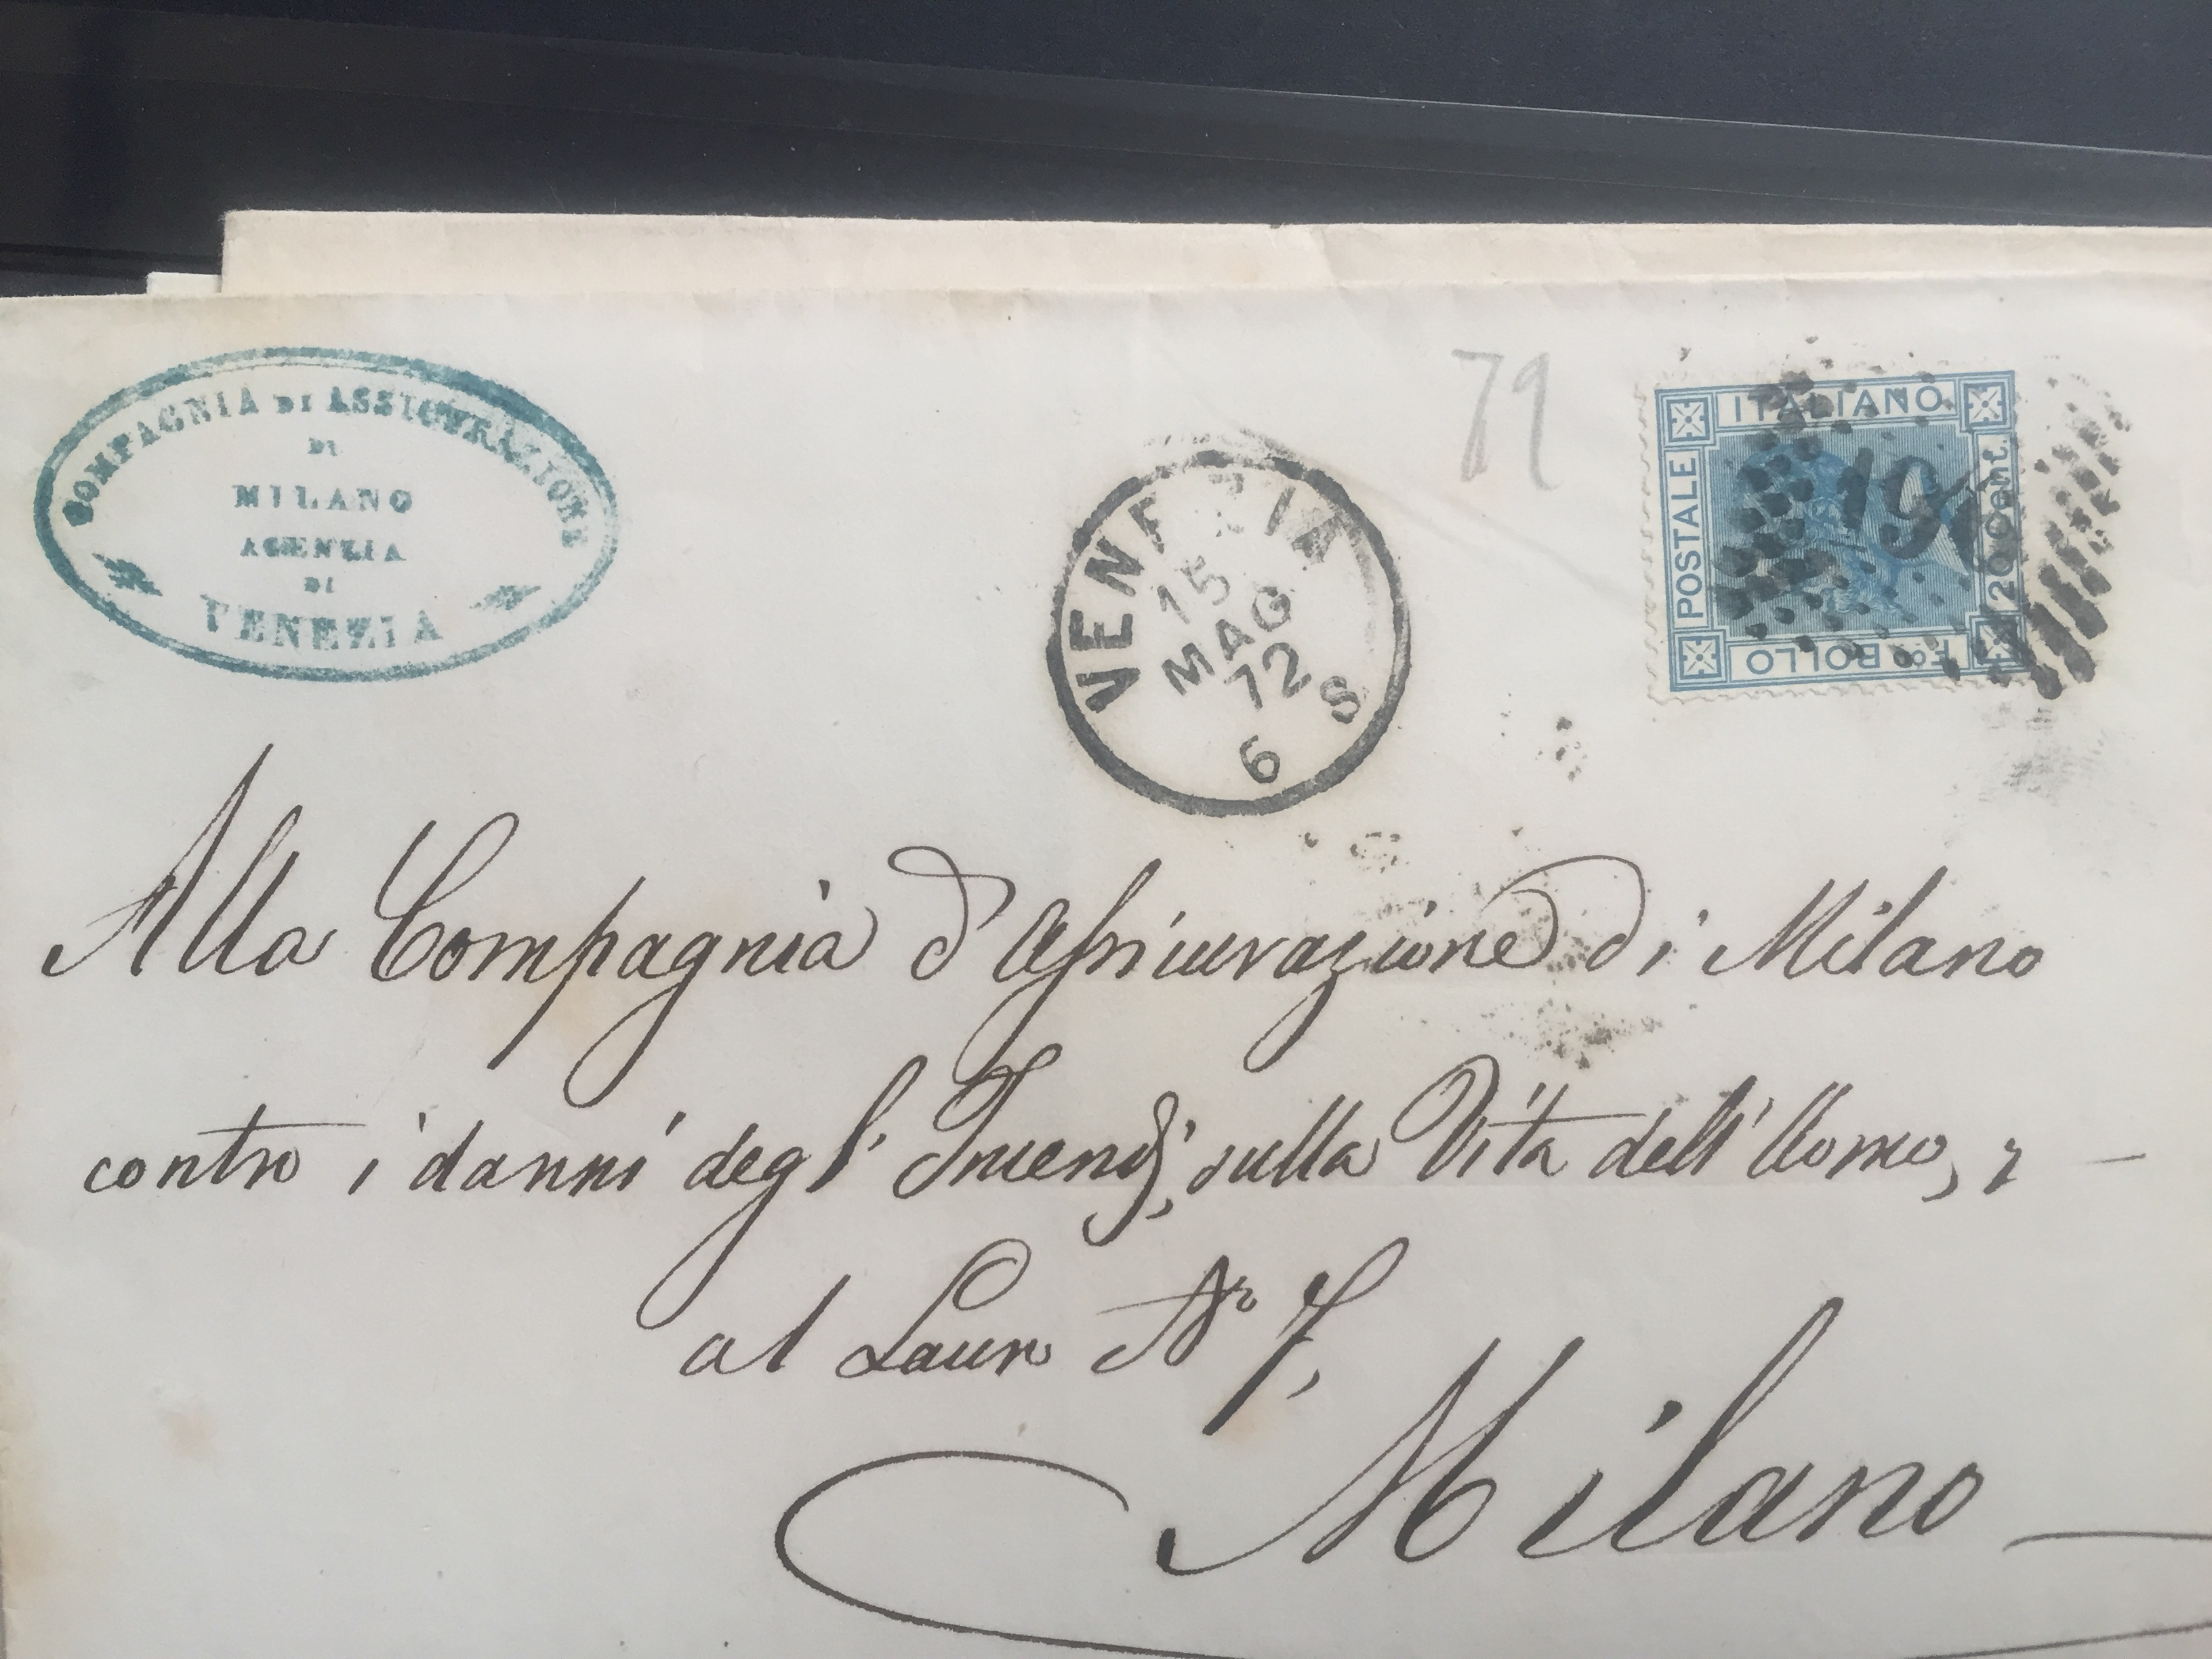 COMPAGNIA DI ASSICURAZIONE
DI
MILANO
AGENZIA
DI
VENEZIA
VENEZIA
15
MAG
72
6 S
79
ITALIANO
POSTALE
20 Cent.
Fco BOLLO
196
Alla Compagnia d'Assicurazione di Milano
contro i danni degl' Incendj, sulla Vita dell' Uomo,
al Lauro No 7,
Milano